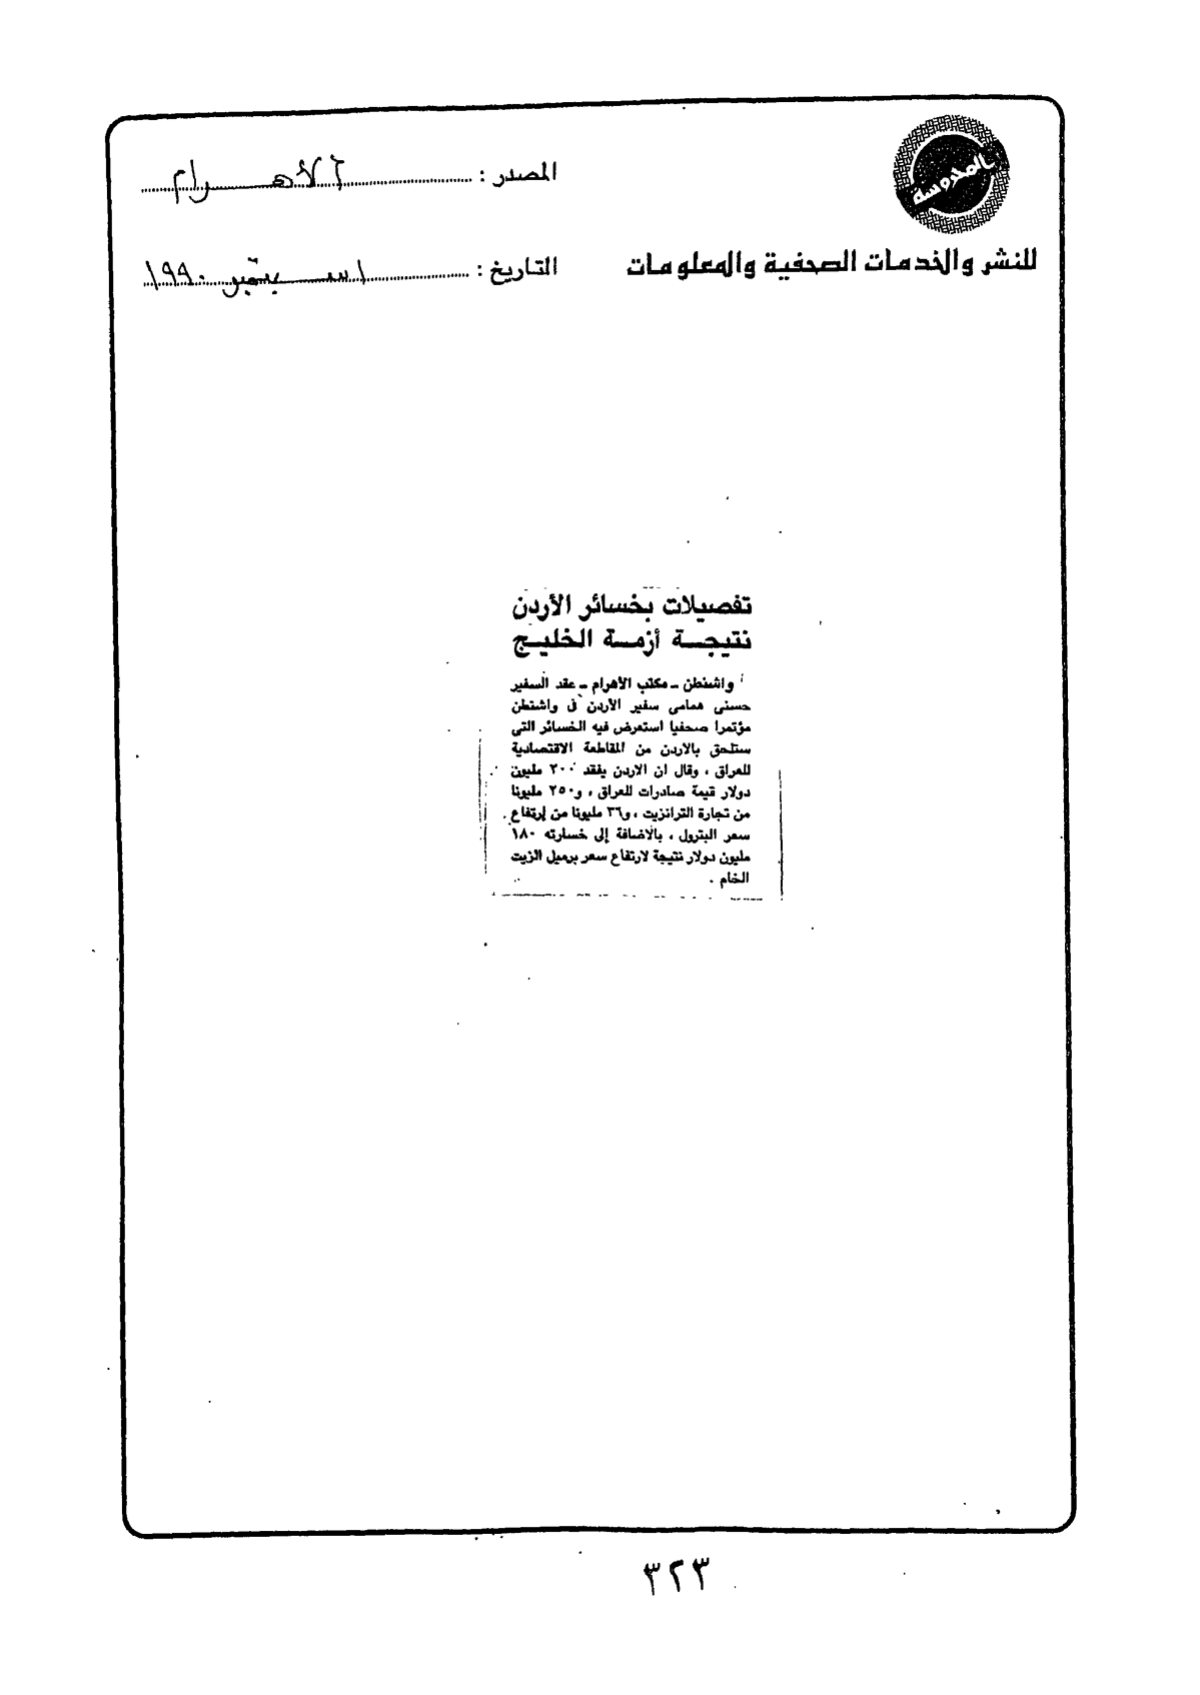 المحروسة
للنشر والخدمات الصحفية والمعلومات
المصدر : الأهرام
التاريخ : ١ سبتمبر ١٩٩٠
تفصيلات بخسائر الأردن
نتيجـــة أزمـــة الخليـج
واشنطن ــ مكتب الأهرام ــ عقد السفير
حسنى همامى سفير الأردن فى واشنطن
مؤتمرا صحفيا استعرض فيه الخسائر التى
ستلحق بالاردن من المقاطعة الاقتصادية
للعراق ، وقال ان الاردن يفقد ٢٠٠ مليون
دولار قيمة صادرات للعراق ، و٢٥٠ مليونا
من تجارة الترانزيت ، و٣٦ مليونا من إرتفاع
سعر البترول ، بالاضافة إلى خسارته ١٨٠
مليون دولار نتيجة لارتفاع سعر برميل الزيت
الخام .
٣٢٣